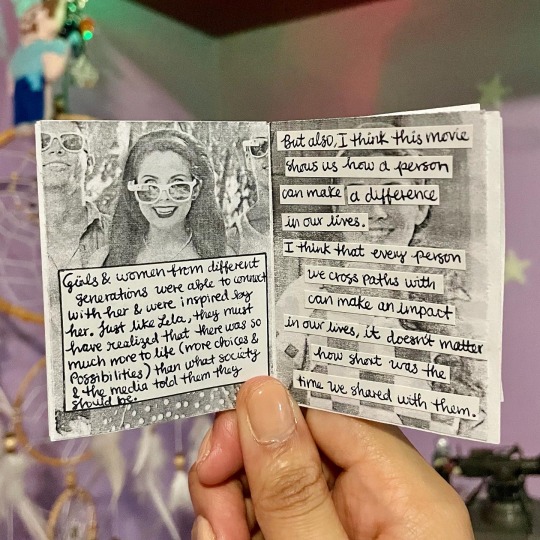 Girls & women from different
generations were able to connect
with her & were inspired by
her. Just like Lela, they must
have realized that there was so
much more to life (more choices &
Possibilities) than what society
& the media told them they
should be.
But also, I think this movie
shows us how a person
can make a difference
in our lives.
I think that every person
we cross paths with
can make an impact
in our lives, it doesn't matter
how short was the
time we shared with them.